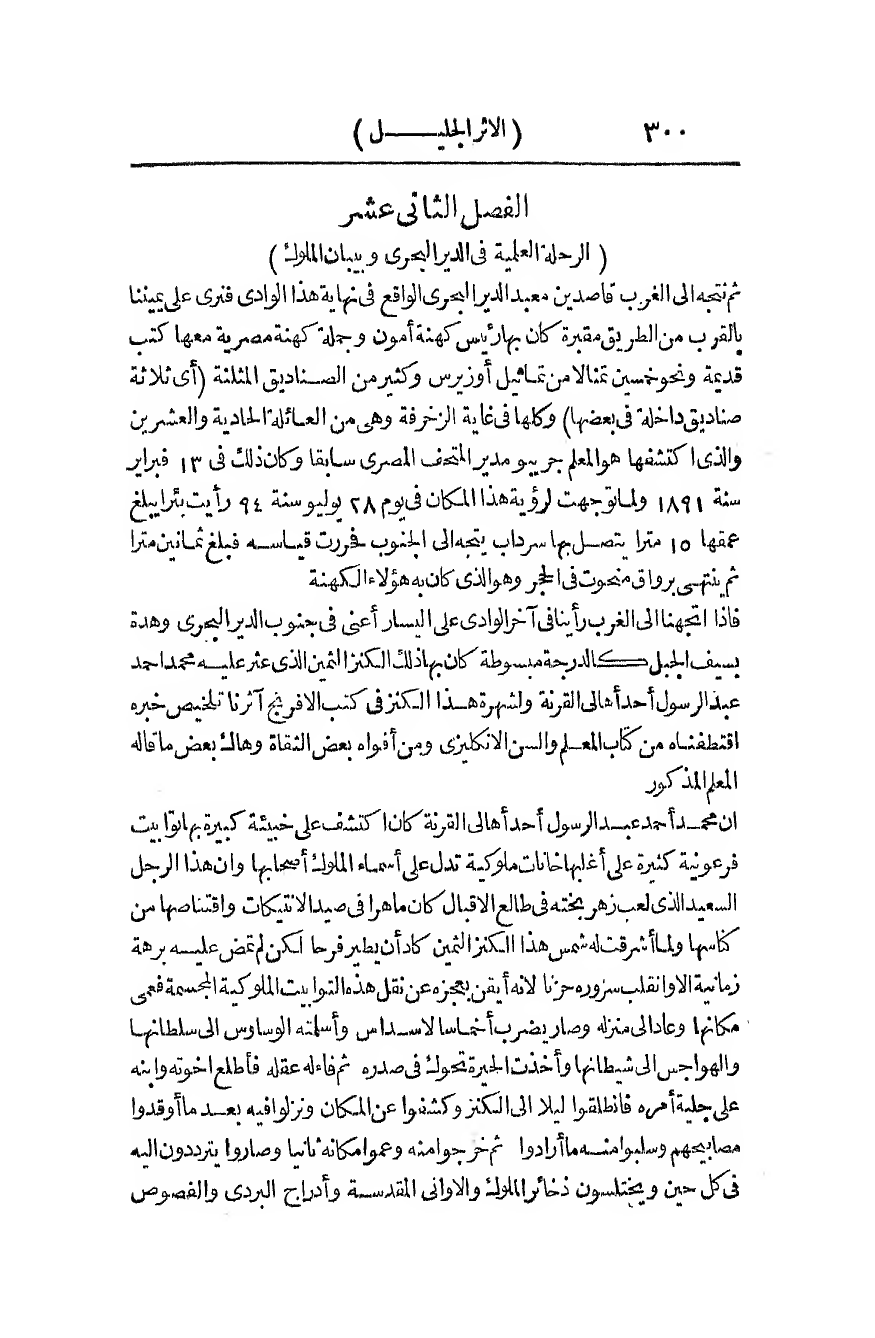 ٣٠٠ (الاثر الجليــل)
الفصل الثانى عشر
(الرحلة العلمية فى الدير البحرى وبيبان الملوك)
ثم نتجه الى الغرب قاصدين معبد الدير البحرى الواقع فى نهاية هذا الوادى فنرى على يميننا
بالقرب من الطريق مقبرة كان بها رئيس كهنة أمون وجملة كهنة مصرية معها كتب
قديمة ونحو خمسين تمثالا من تماثيل أوزيرس وكثير من الصناديق المثلثة (أى ثلاثة
صناديق داخلة فى بعضها) وكلها فى غاية الزخرفة وهى من العائلة الحادية والعشرين
والذى اكتشفها هو المعلم جريبو مدير المتحف المصرى سابقا وكان ذلك فى ١٣ فبراير
سنة ١٨٩١ ولما توجهت لرؤية هذا المكان فى يوم ٢٨ يوليو سنة ٩٤ رأيت بئرا يبلغ
عمقها ١٥ مترا يتصل بها سرداب يتجه الى الجنوب فحررت قياسه فبلغ ثمانين مترا
ثم ينتهى برواق منحوت فى الحجر وهو الذى كان به هؤلاء الكهنة
فاذا اتجهنا الى الغرب رأينا فى آخر الوادى على اليسار أعنى فى جنوب الدير البحرى وهدة
بسيف الجبل كالدرجة مبسوطة كان بها ذلك الكنز الثمين الذى عثر عليه محمد احمد
عبد الرسول أحد أهالى القرنة ولشهرة هذا الكنز فى كتب الافرنج آثرنا تلخيص خبره
اقتطفناه من كتاب المعلم والسن الانكليزى ومن أفواه بعض الثقاة وهاك بعض ما قاله
المعلم المذكور
ان محمد أحمد عبد الرسول أحد أهالى القرنة كان اكتشف على خبيئة كبيرة بها توابيت
فرعونية كثيرة على أغلبها خانات ملوكية تدل على أسماء الملوك أصحابها وان هذا الرجل
السعيد الذى لعب زهر بخته فى طالع الاقبال كان ماهرا فى صيد الانتيكات واقتناصها من
كناسها ولما أشرقت له شمس هذا الكنز الثمين كاد أن يطير فرحا لكن لم تمض عليه برهة
زمانية الا وانقلب سروره حزنا لانه أيقن بعجزه عن نقل هذه التوابيت الملوكية المجسمة فعمى
مكانها وعاد الى منزله وصار يضرب أخماسا لاسداس وأسلمته الوساوس الى سلطانها
والهواجس الى شيطانها وأخذت الحيرة تحوك فى صدره ثم فاء له عقله فأطلع اخوته وابنه
على جلية أمره فانطلقوا ليلا الى الكنز وكشفوا عن المكان ونزلوا فيه بعد ما أوقدوا
مصابيحهم وسلبوا منه ما أرادوا ثم خرجوا منه وعموا مكانه ثانيا وصاروا يترددون اليه
فى كل حين ويختلسون ذخائر الملوك والاوانى المقدسة وأدراج البردى والفصوص